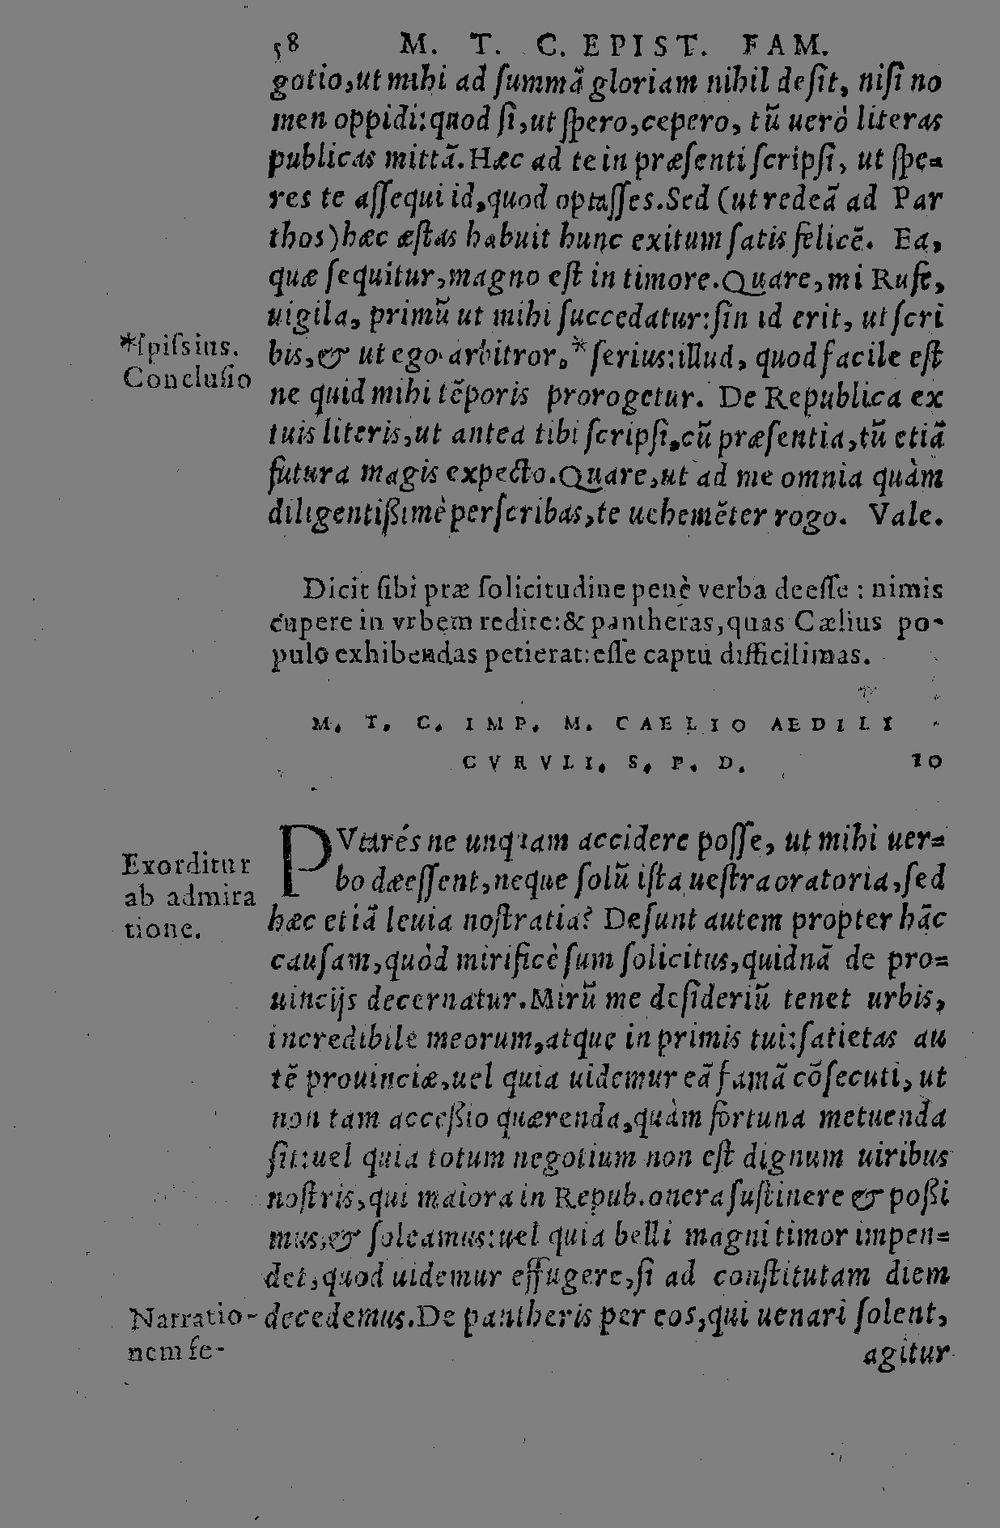 58 M. T. C. EPIST. FAM.
gotio,ut mihi ad ſummã gloriam nihil deſit, niſi no
men oppidi:quod ſi,ut ſpero,cepero, tũ uerò literas
publicas mittã.Hæc ad te in præſenti ſcripſi, ut ſpe=
res te aſſequi id,quod optaſſes.Sed (ut redeã ad Par
thos)hæc æſtas habuit hunc exitum ſatis felicẽ. Ea,
quæ ſequitur,magno eſt in timore.Quare,mi Rufe,
uigila, primũ ut mihi ſuccedatur:ſin id erit, ut ſcri
*ſpiſsius.
bis,& ut ego arbitror,*ſerius:illud, quod facile eſt
Concluſio
ne quid mihi tẽporis prorogetur. De Republica ex
tuis literis,ut antea tibi ſcripſi,cũ præſentia,tũ etiã
futura magis expecto.Quare,ut ad me omnia quàm
diligentißimè perſcribas,te uehemẽter rogo. Vale.
Dicit ſibi præ ſolicitudine penè verba deeſſe : nimis
cupere in vrbem redire:& pantheras,quas Cælius po-
pulo exhibendas petierat:eſſe captu difficilimas.
M. T. C. IMP. M. CAELIO AEDILI
CVRVLI. S. P. D. 10
PVtarés ne unquam accidere poſſe, ut mihi uer=
Exorditur
bo dæeſſent,neque ſolũ iſta ueſtra oratoria,ſed
ab admira
hæc etiã leuia noſtratia? Deſunt autem propter hãc
tione.
cauſam,quòd mirificè ſum ſolicitus,quidnã de pro=
uincijs decernatur.Mirũ me deſideriũ tenet urbis,
incredibile meorum,atque in primis tui:ſatietas au
tẽ prouinciæ,uel quia uidemur eã famã cõſecuti, ut
non tam acceßio quærenda,quàm fortuna metuenda
ſit:uel quia totum negotium non eſt dignum uiribus
noſtris,qui maiora in Repub.onera ſuſtinere & poßi
mus,& ſoleamus:uel quia belli magni timor impen=
det,quod uidemur effugere,ſi ad conſtitutam diem
Narratio-
decedemus.De pantheris per eos,qui uenari ſolent,
nem fe-
agitur